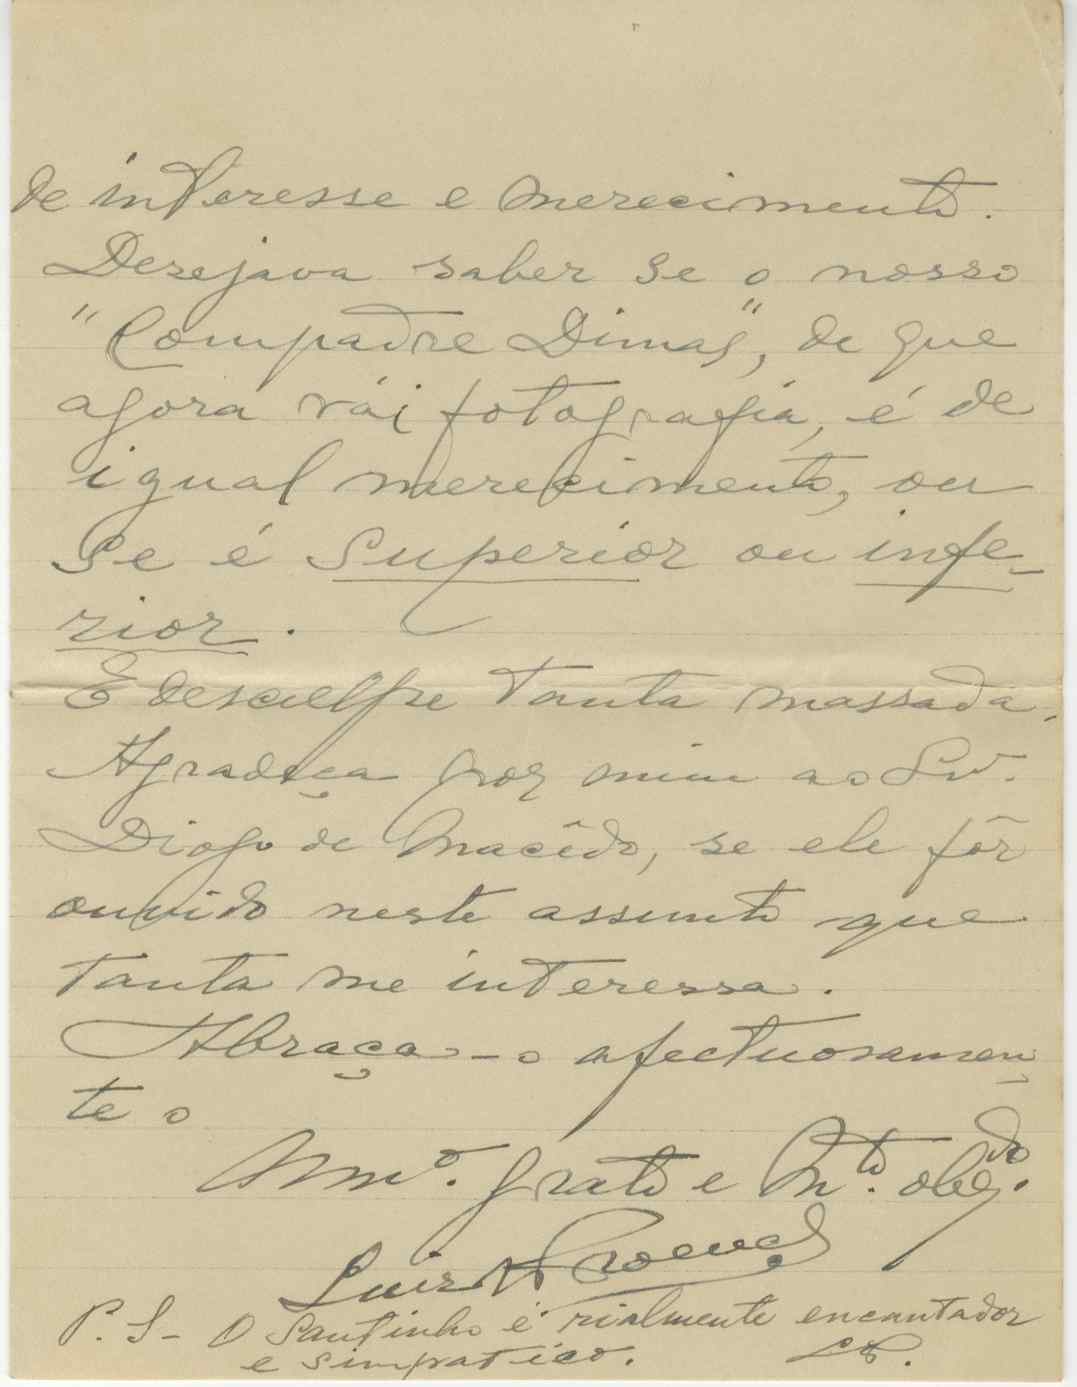 de interesse e merecimento.
Desejava saber se o nosso
"Compadre Dimas", de que
agora vái fotografia, é de
igual merecimento, ou
se é superior ou infe-
rior.
E desculpe tanta massada.
Agradeça por mim ao Snr.
Diogo de Macêdo, se ele fôr
ouvido neste assunto que
tanto me interessa.
Abraça-o afectuosamen-
te o
Amº. grato e Mto. obgdo.
Luis
P.S- O Santinho é rialmente encantador
e simpatico. LP.